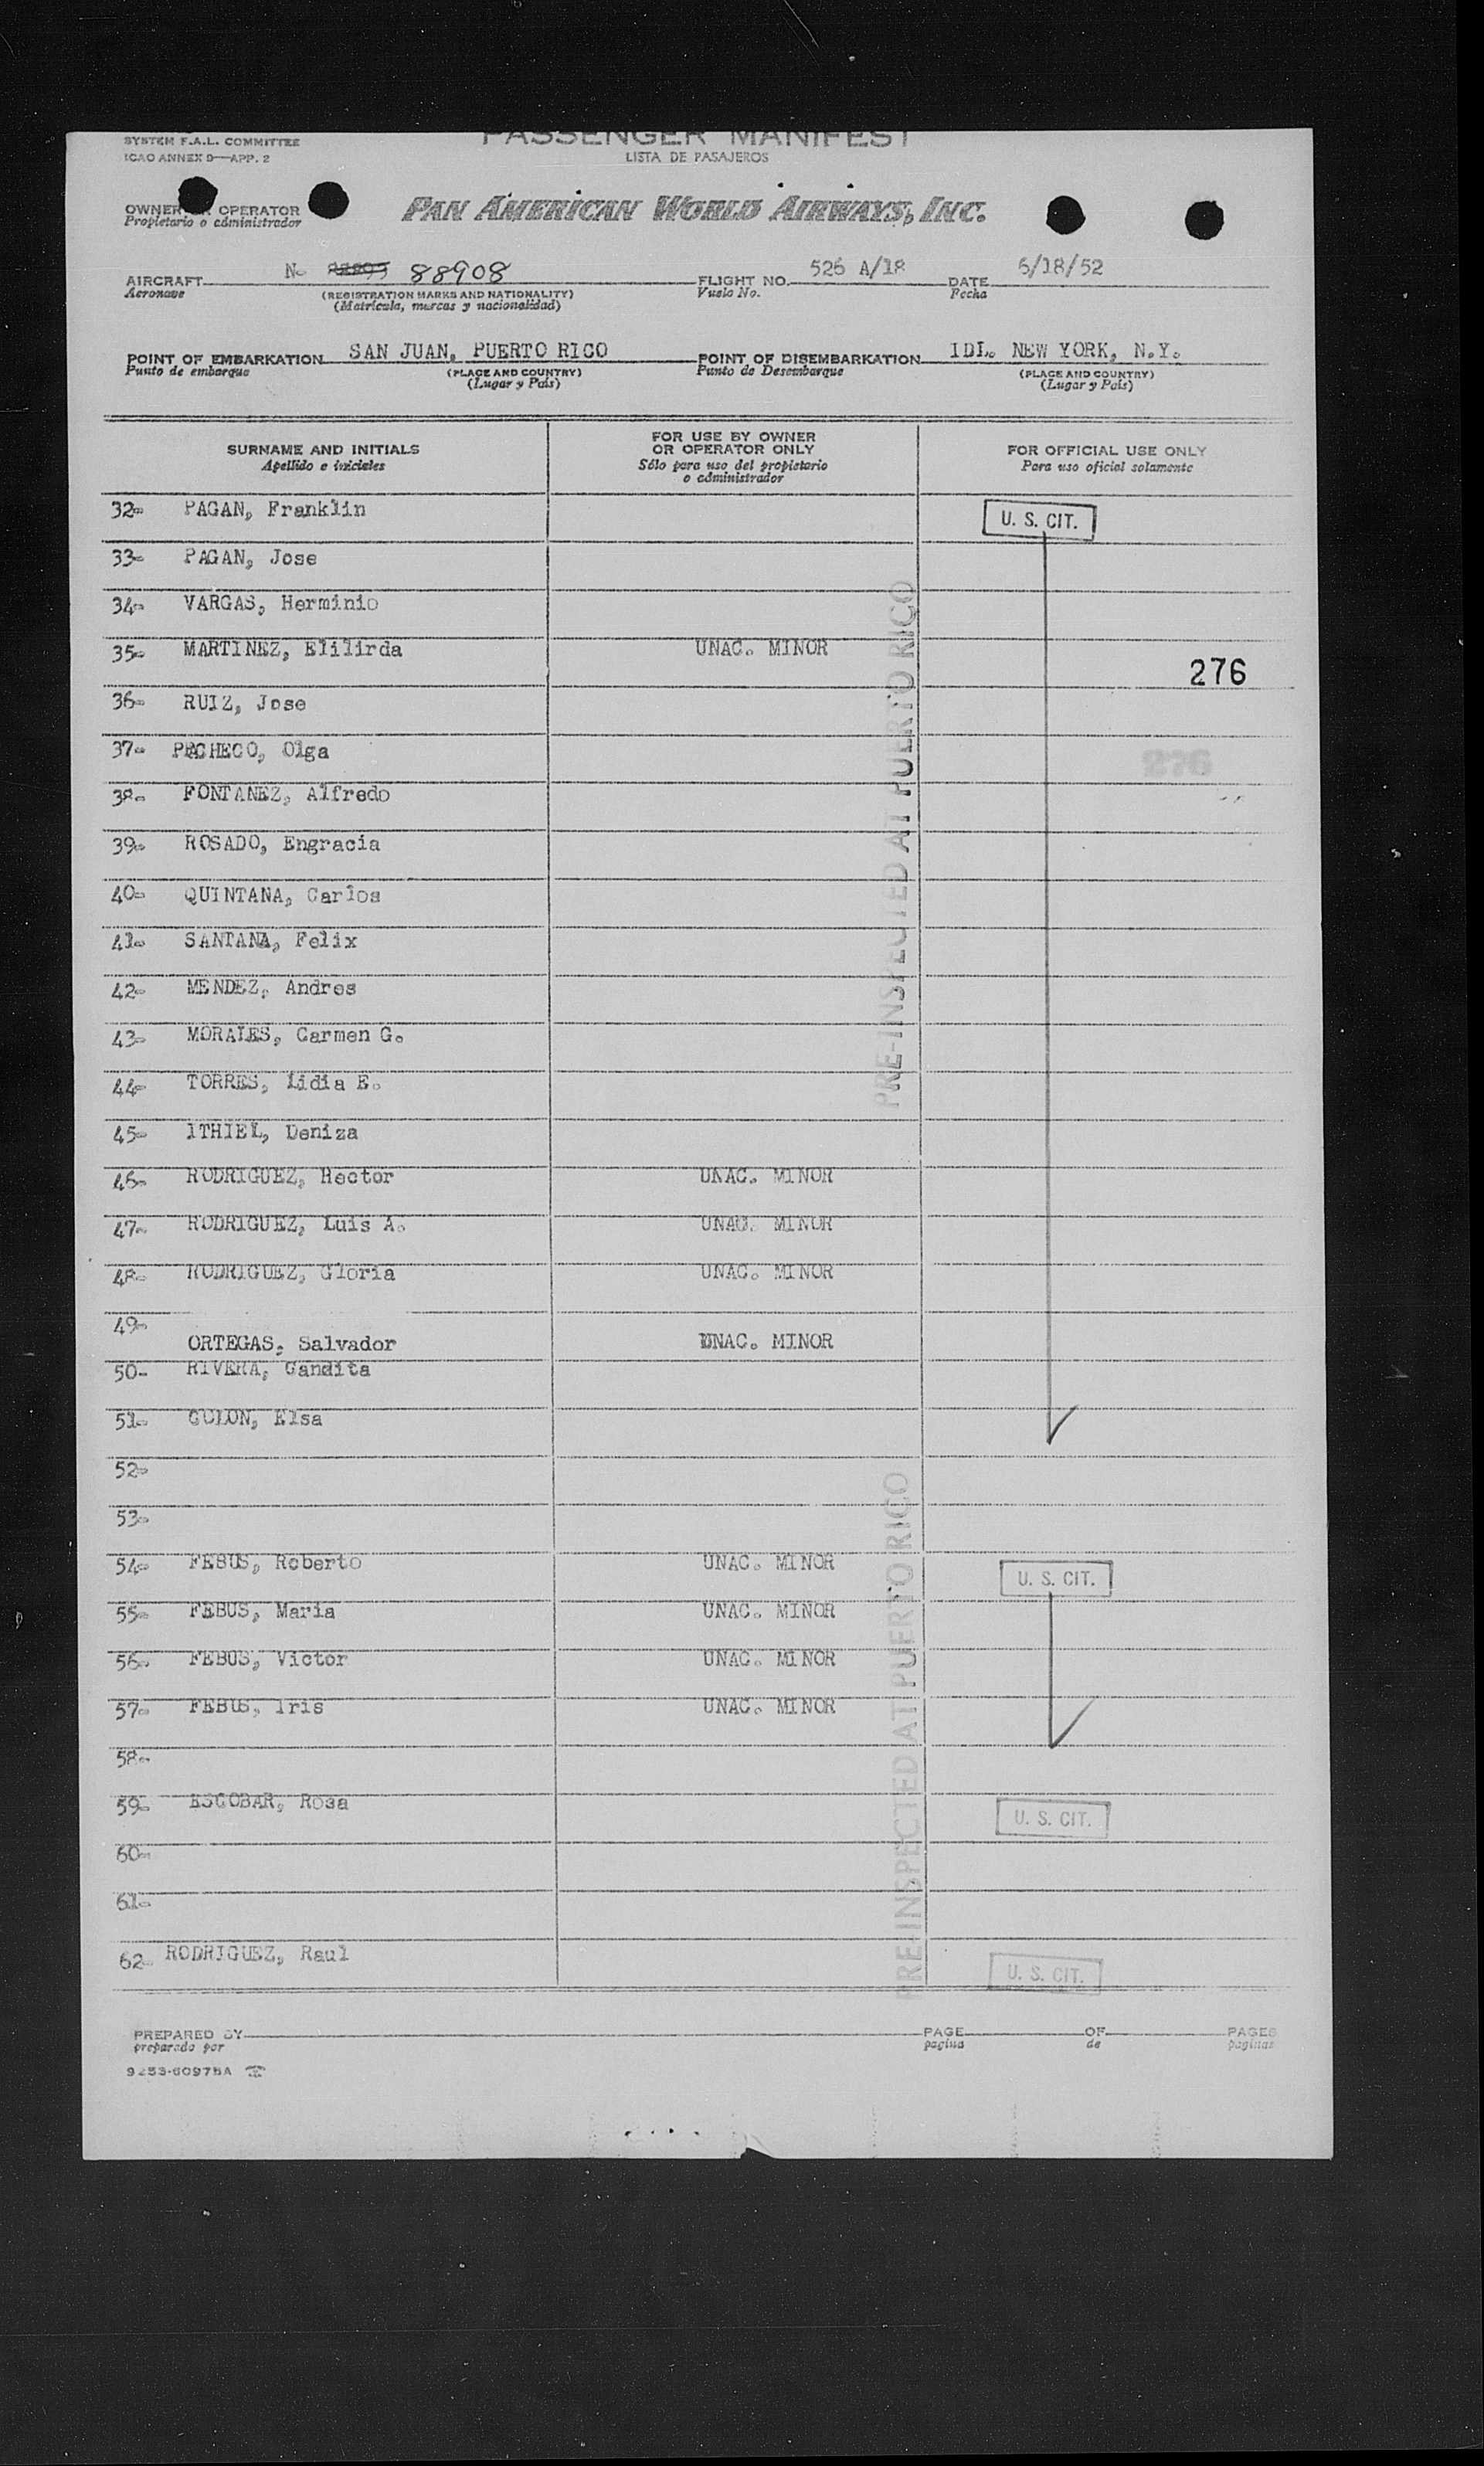 SYSTEM F.A.L. COMMITTEE
ICAO ANNEX 9—APP. 2
PASSENGER MANIFEST
LISTA DE PASAJEROS
OWNER OR OPERATOR
Propietario o administrador
PAN AMERICAN WORLD AIRWAYS, INC.
AIRCRAFT N- 88908 FLIGHT NO. 526 A/18 DATE 6/18/52
Aeronave (REGISTRATION MARKS AND NATIONALITY) Vuelo No. Fecha
(Matricula, marcas y nacionalidad)
POINT OF EMBARKATION SAN JUAN, PUERTO RICO POINT OF DISEMBARKATION IDL. NEW YORK, N.Y.
Punto de embarque (PLACE AND COUNTRY) Punto de Desembarque (PLACE AND COUNTRY)
(Lugar y País) (Lugar y País)
SURNAME AND INITIALS
Apellido e iniciales
FOR USE BY OWNER
OR OPERATOR ONLY
Sólo para uso del propietario
o administrador
FOR OFFICIAL USE ONLY
Para uso oficial solamente
32- PAGAN, Franklin U. S. CIT.
33- PAGAN, Jose
34- VARGAS, Herminio
35- MARTINEZ, Elilirda UNAC. MINOR
276
36- RUIZ, Jose
37- PACHECO, Olga
276
38- FONTANEZ, Alfredo
39- ROSADO, Engracia
40- QUINTANA, Carlos
41- SANTANA, Felix
42- MENDEZ, Andres
43- MORALES, Carmen G.
44- TORRES, Lidia E.
45- ITHIEL, Deniza
PRE-INSPECTED AT PUERTO RICO
46- RODRIGUEZ, Hector UNAC. MINOR
47- RODRIGUEZ, Luis A. UNAC. MINOR
48- RODRIGUEZ, Gloria UNAC. MINOR
49-
ORTEGAS, Salvador UNAC. MINOR
50- RIVERA, Candita
51- COLON, Elsa
52-
53-
54- FEBUS, Roberto UNAC. MINOR U. S. CIT.
55- FEBUS, Maria UNAC. MINOR
56- FEBUS, Victor UNAC. MINOR
57- FEBUS, Iris UNAC. MINOR
58-
59- ESCOBAR, Rosa U. S. CIT.
60-
61-
62- RODRIGUEZ, Raul U. S. CIT.
PRE-INSPECTED AT PUERTO RICO
PREPARED BY PAGE OF PAGES
preparado por pagina de paginas
9253-60975A